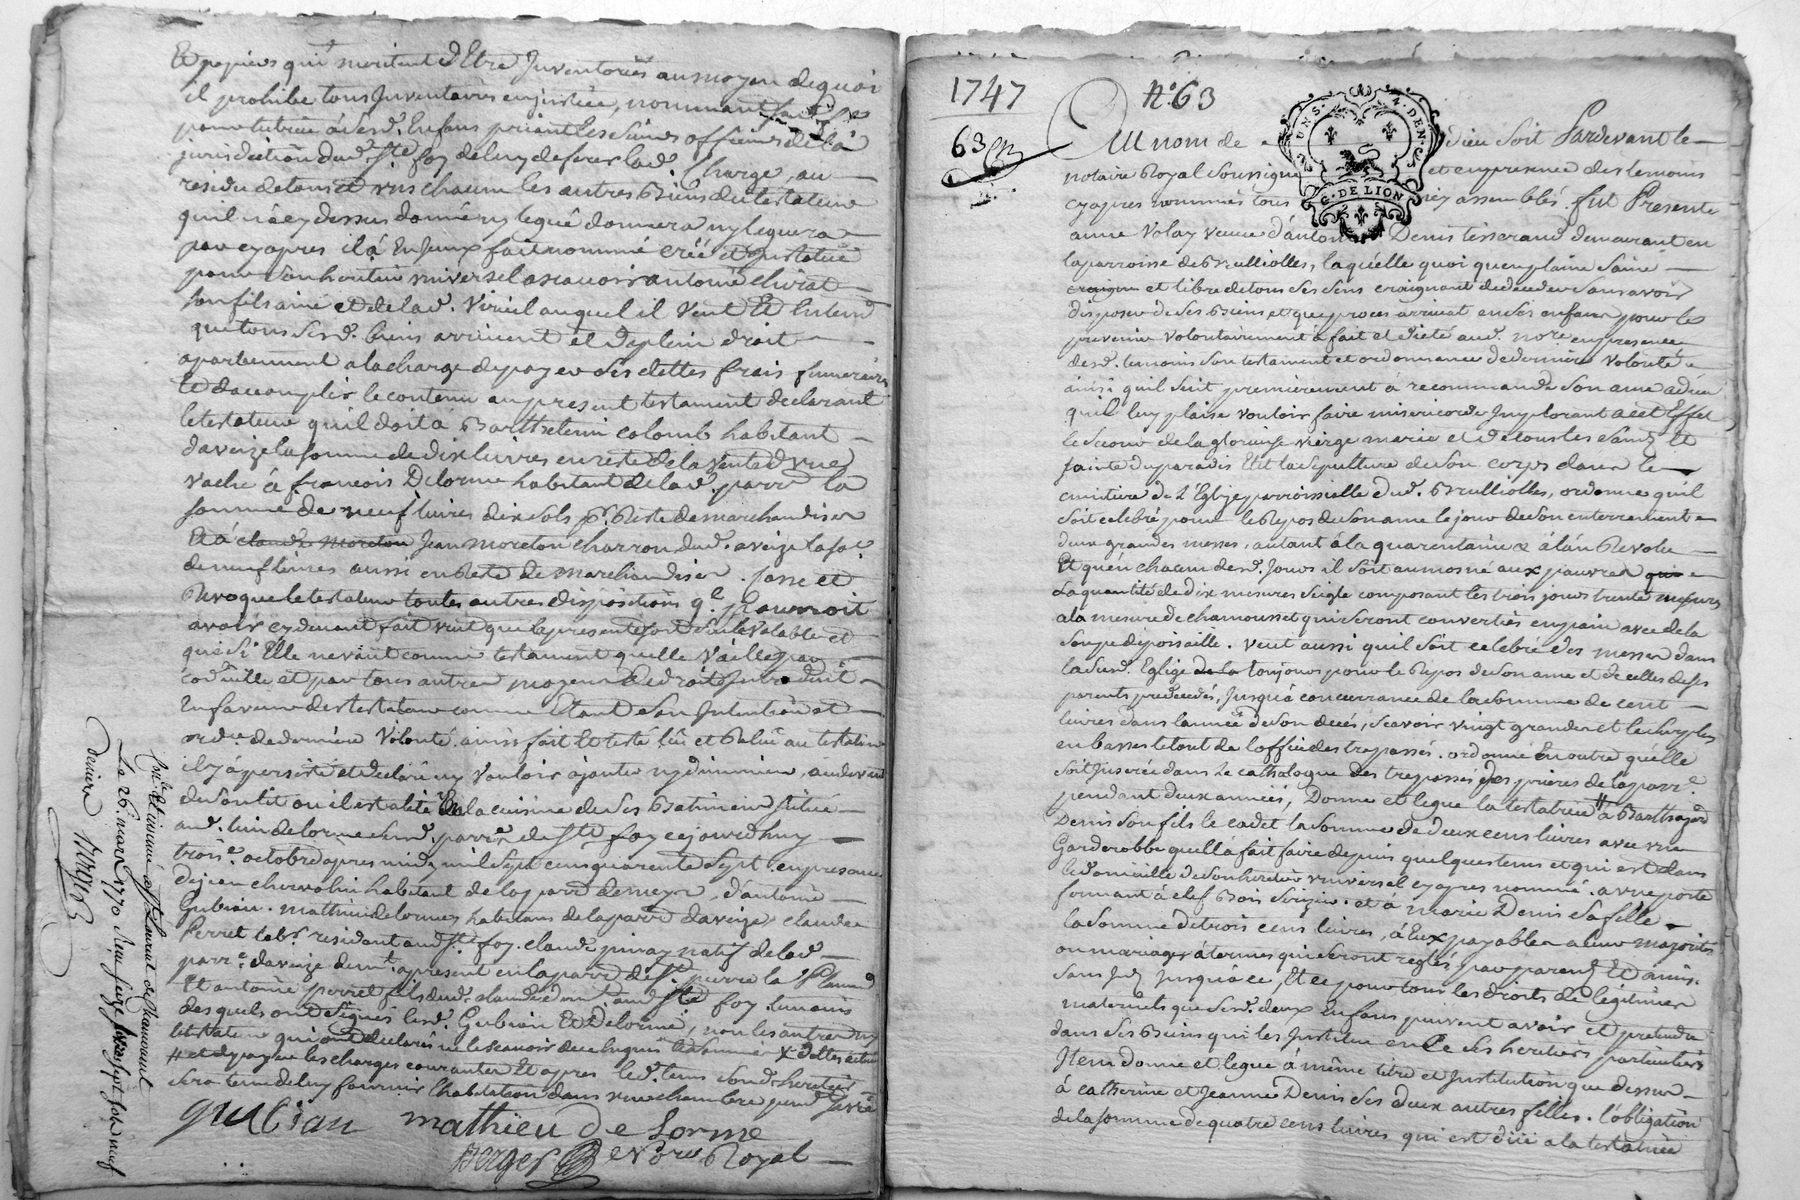 Et papiers qui meritent d'Etre Inventoriés au moyen de quoi
il prohibe tous Inventaires en justice, nommant
pour tutrice à sesd. Enfans priant les sieurs officiers de la
jurisdiction dud. Ste foy de luy deferer lad. Charge, au
residu de tous et uns chacun les autres Biens du testateur
qu'il n'a cy dessus donné ny legué donnera ny leguera
par cy apres il a En Iceux fait nommé créé et Institué
pour son heritier universel ascavoir antoine chirat
son fils ainé et de lad. Viricil auquel il Veut Et Entend
que tous sesd. biens arrivent et de plein droit
apartiennent a la charge de payer ses dettes frais funeraires
et d'accomplir le contenu au present testament declarant
le testateur qu'il doit à Barthelemi colomb habitant
d'aveize la somme de dix livres en reste de la vente d'une
vache à francois Delorme habitant de lad. parr. la
somme de neuf livres dix sols pr. Reste de marchandises
Et à claude Moreton Jean Moreton charron dud. aveize la so.e
de neuf livres aussi en Reste de marchandises. Casse et
Revoque le testateur toutes autres dispositions q.l pourroit
avoir cy devant fait veut que la presente soit seule valable et
que si Elle ne vaut comme testament quelle vaille par
codicille et par tous autres moyens de droit Introduit
En faveur des testateurs comme Etant son Intention et
ord.ce de derniere Volonté. ainsi fait Et testé lû et Relu au testateur
il y a persisté et declaré ny vouloir ajouter ny diminuer, au devant
de son lit ou il est alité En la cuisine de ses Batimens situé
aud. lieu de lorme sur d. parr.e de Ste foy cejourd'huy
trois.e octobre apres midy mil sept cens quarente sept en presence
de jean chervolin habitant de la parr. de meys, d'antoine
Gubian. Mathieu delorme habitans de la parr. d'aveize claude
Perret lab.r residant aud. Ste foy, claude pinay natif de lad.
parr.e d'aveize dem.t a present en la parr. de St. pierre la
Et antoine perret fils dud. claude dem.t aud. Ste foy temoins
desquels ont signés lesd. Gubian Et Delorme, non les autres ny
le testateur qui ont declarés ne le scavoir de ce Enquis Et sommés
# et de payer les charges courantes Et apres led. tems sond. heritier
sera tenu de luy fournir l'habitation dans une chambre pend.
gubian mathieu de lorme
Berger Nore Royal
Con.lé Et insinué à St Laurent de Chamousset
Le 26. mars 1770 Reçu seize livres sept sols neuf
deniers Berger
1747
N.o 63
63
GEN. DE LION
Au nom de dieu soit Pardevant le
notaire Royal soussigné et en presence des temoins
cy apres nommés tous icy assemblés. fut Presente
anne Volay veuve d'antoine Denis tisserand demeurant en
la parroisse de Brulliolles, laquelle quoi qu'en plaine santé
et libre de tous ses sens craignant de deceder sans avoir
disposer de ses Biens et que proces arrivat en ses enfans pour les
prevenir volontairement à fait et dicté aud. no.re en presence
desd. temoins son testament et ordonnance de derniere volonté
ainsi qu'il suit premierement à recommandé son ame a dieu
qu'il luy plaise vouloir faire misericorde Implorant a cet Effet
le secour de la glorieuse vierge marie et de tous les saints Et
sainte du paradis Elit la sepulture de son corps dans le
cimitiere de l'Eglise parroissialle dud. Brulliolles, ordonne qu'il
soit celebré pour le Repos de son ame le jour de son enterrement
deux grandes messes, autant à la quarentaine & à l'an Revolu
Et qu'en chacun desd. Jours il soit aumosné aux pauvres qui
La quantité de dix mesures seigle composant les trois jours trente mesures
a la mesure de chamousset qui seront convertiés en pain avec de la
soupe de poisaille. veut aussi qu'il soit celebré des messes dans
la susd. Eglise de la toujours pour le Repos de son ame et de celles de ses
parents predecedés, Jusqu'à concurrance de la somme de cent
livres dans l'année de son deces, scavoir vingt grandes et le surplus
en basses le tout de l'office des trepassés. ordonne En outre qu'elle
soit Inserée dans Le cathalogue des trepassés des prieres de la parr.e
pendant deux années, Donne et legue la testatrice # à Barthelemy
Denis son fils le cadet la somme de deux cens livres avec une
Garderobbe qu'ell'a fait faire depuis quelques tems et qui est dans
le domicille de son heritier universel cy apres nommé. a une porte
fermant à clef Bois serizier. et à marie Denis sa fille
la somme de trois cens livres, à Eux payables a leur majorité
ou mariages à termes qui seront reglés par parens Et amis.
sans Int. jusqu'à ce, Et ce pour tous les droits de legitimes
maternels que sesd. deux Enfans peuvent avoir et pretendre
dans ses Biens qui les Institue en ce ses heritiers particuliers
Item donne et legue à même titre et Institution que dessus
à catherine et Jeanne Denis ses deux autres filles. l'obligation
de la somme de quatre cens livres qui est düe a la testatrice